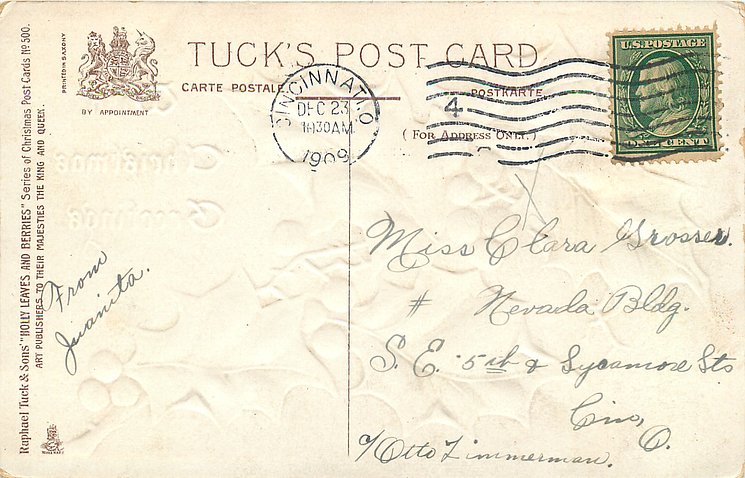 TUCK'S POST CARD
CARTE POSTALE
POSTKARTE
(FOR ADDRESS ONLY.)
PRINTED IN SAXONY
BY APPOINTMENT
Raphael Tuck & Sons' "HOLLY LEAVES AND BERRIES" Series of Christmas Post Cards Nº 500.
ART PUBLISHERS TO THEIR MAJESTIES THE KING AND QUEEN.
CINCINNATI, O.
DEC 23
10 30 AM
1909
4
U.S. POSTAGE
ONE CENT
Christmas
Greetings
From
Juanita.
Miss Clara Grosser.
# Nevada Bldg.
S. E. 5th & Sycamore Sts
Cin, O.
c/ Otto Zimmerman.